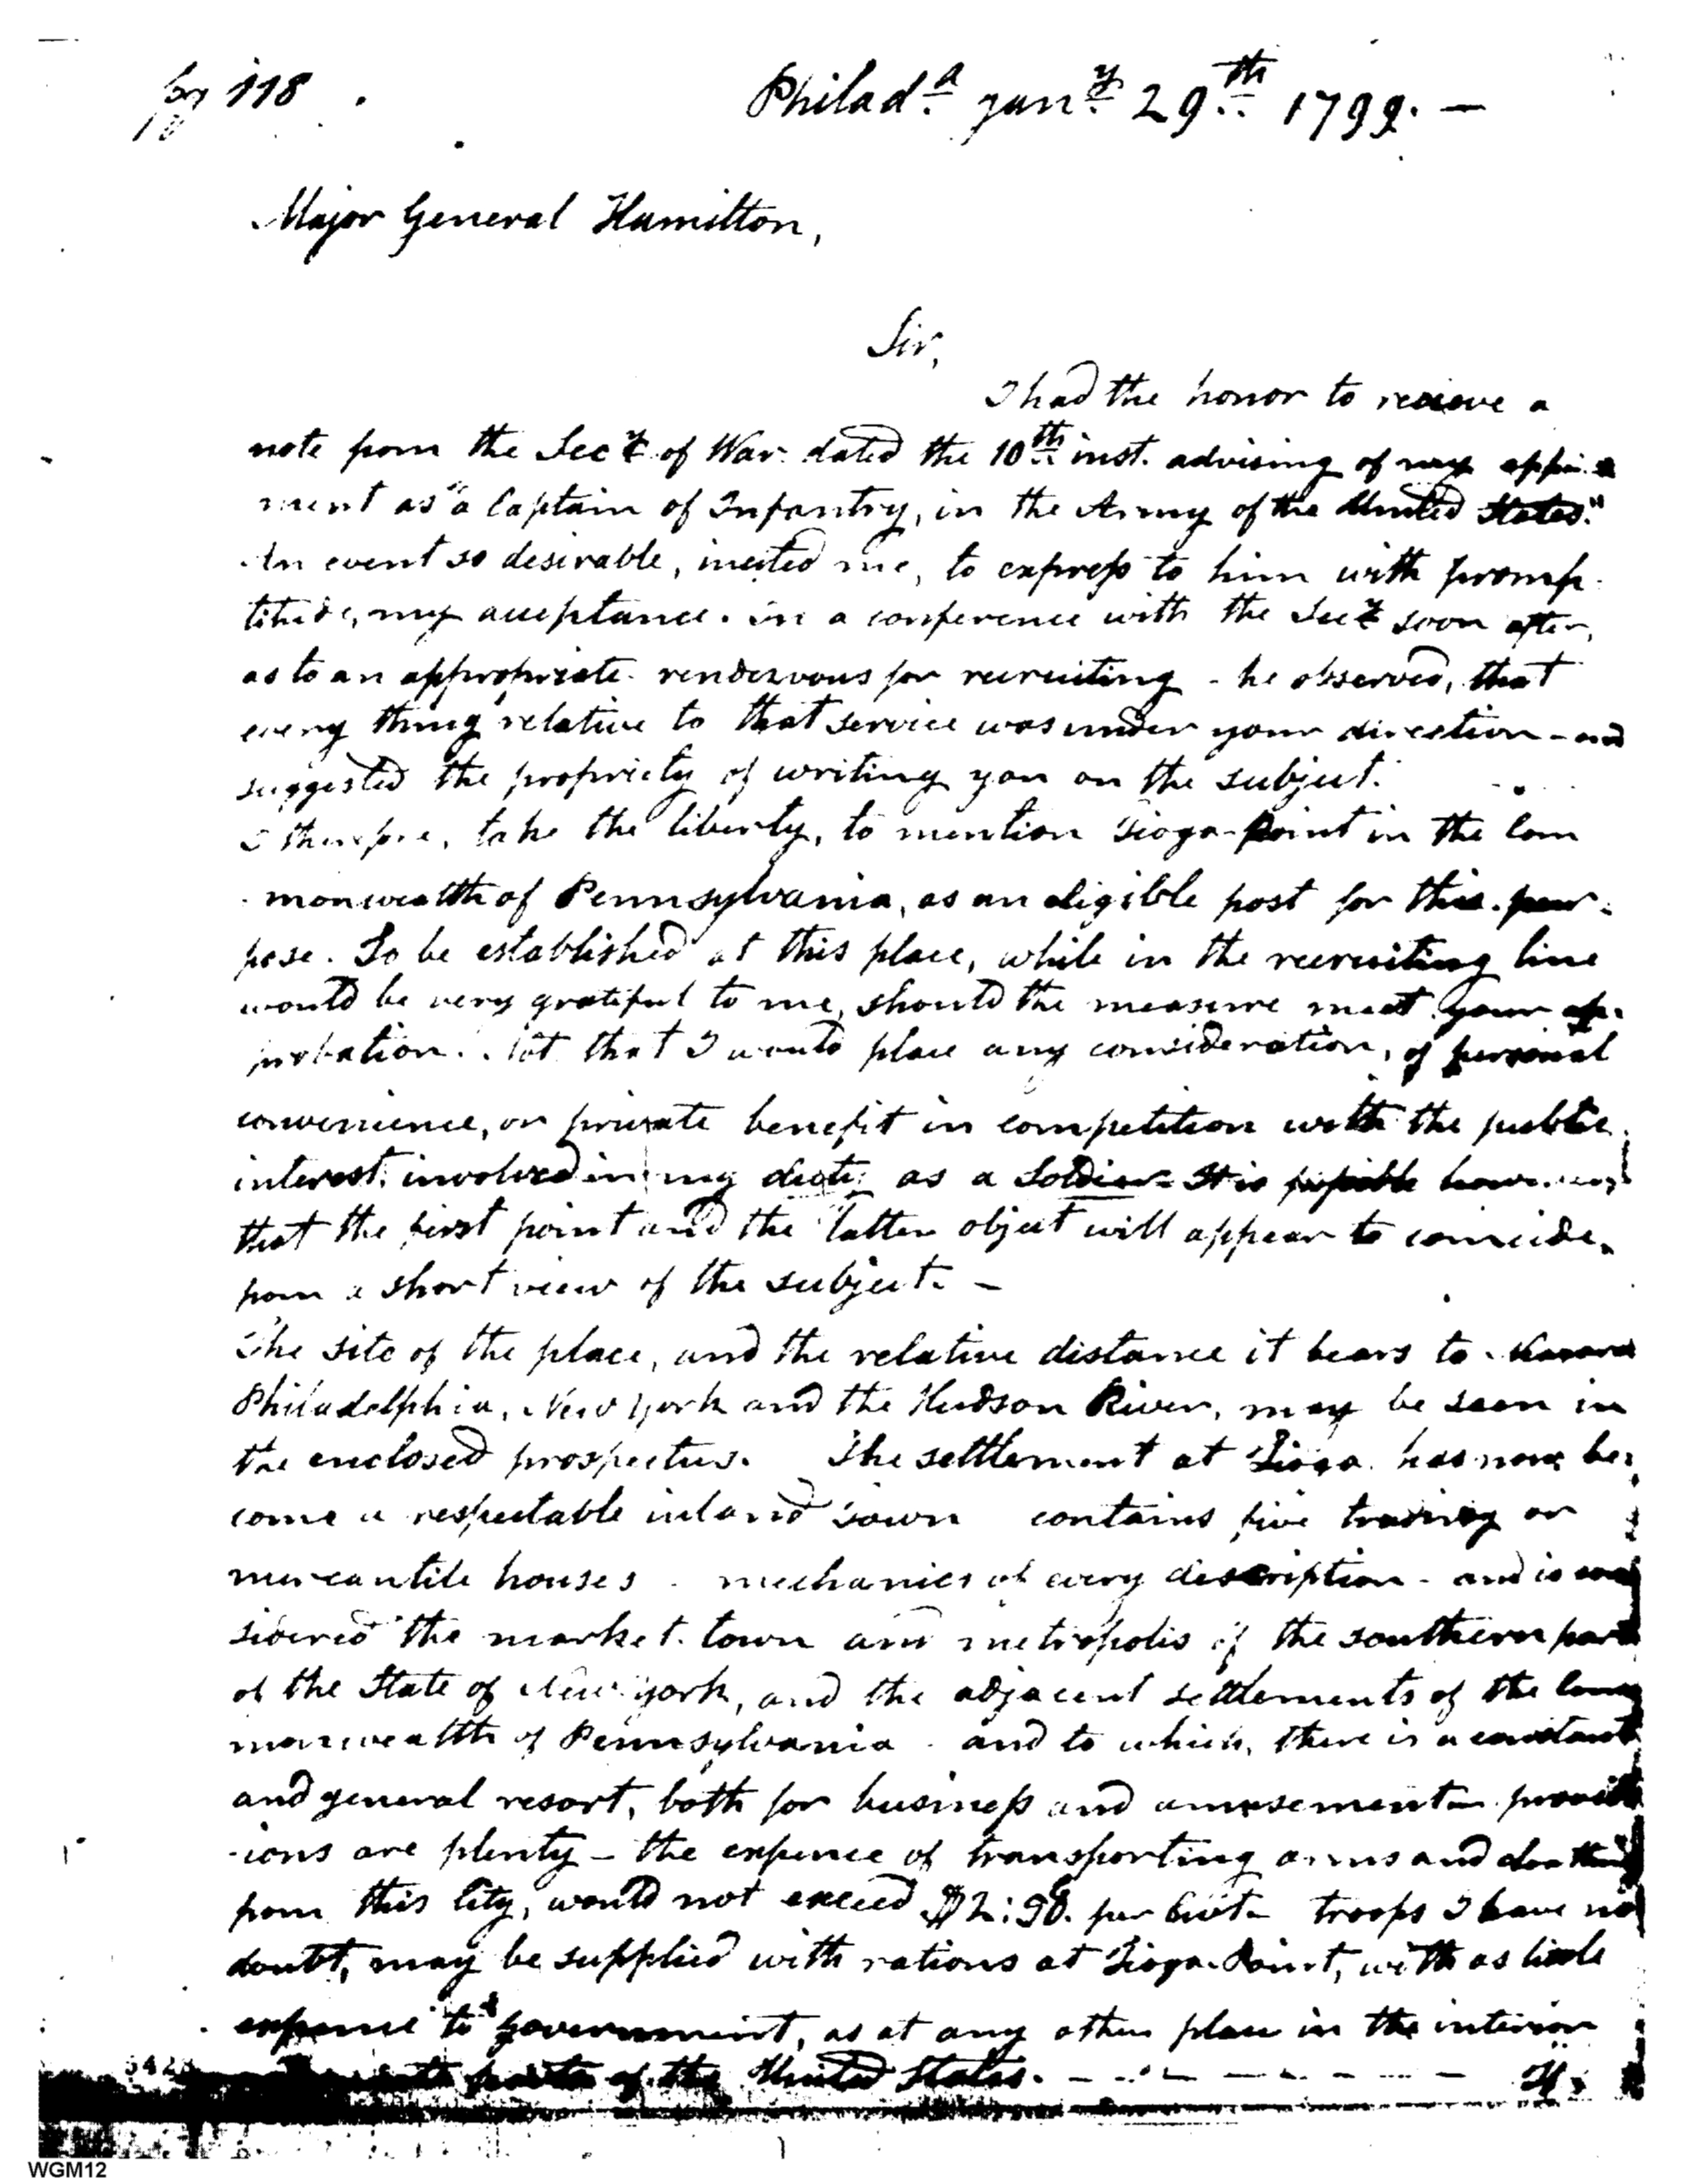 118
Philad.a Jan.y 29.th 1799. —
Major General Hamilton,
Sir,
I had the honor to recieve a
note from the Sec.y of War dated the 10th inst. advising of my
ment as "a Captain of Infantry, in the Army of the United States."
An event so desirable, incited me, to express to him with promp-
titude, my acceptance. in a conference with the Sec.y soon after,
as to an appropriate rendezvous for recruiting - he observed, that
every thing relative to that service was under your direction - and
suggested the propriety of writing you on the subject.
I therefore, take the liberty, to mention Tioga-Point in the Com
monwealth of Pennsylvania, as an eligible post for this pur-
pose. To be established at this place, while in the recruiting line
would be very grateful to me, should the measure meet your ap-
probation. Not that I would place any consideration, of personal
convenience, or private benefit in competition with the public
interest, involved in my duty as a Soldier - It is possible however,
that the first point and the latter object will appear to coincide,
from a short view of the subject. -
The site of the place, and the relative distance it bears to
Philadelphia, New York and the Hudson River, may be seen in
the enclosed prospectus. The settlement at Tioga has now be-
come a respectable inland Town contains five trading or
mercantile houses - mechanics of every description - and is con
sidered the market town and metropolis of the southern part
of the State of New York, and the adjacent settlements of the Com
monwealth of Pennsylvania - and to which, there is a constant
and general resort, both for business and amusement - provis
-ions are plenty - the expence of transporting arms and cloathing
from this City, would not exceed $2:98. per Cwt - troops I have no
doubt, may be supplied with rations at Tioga-Point, with as little
expence to government, as at any other place in the interior
parts of the United States. - - - - - - -
WGM12